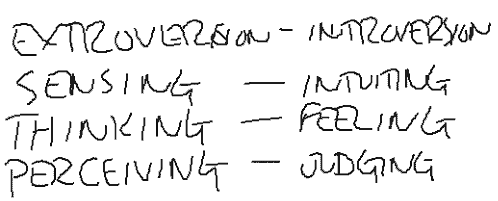 EXTROVERSION - INTROVERSION
SENSING — INTUITING
THINKING — FEELING
PERCEIVING — JUDGING